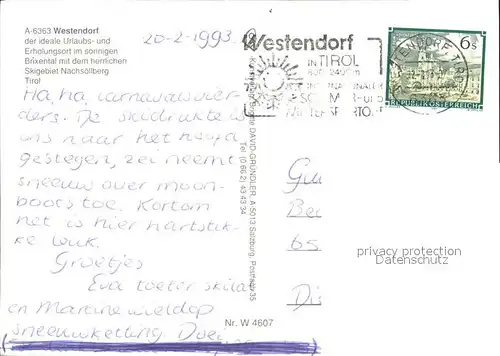 A-6363 Westendorf
der ideale Urlaubs- und
Erholungsort im sonnigen
Brixental mit dem herrlichen
Skigebiet Nachsöllberg
Tirol
20-2-1993
Ha, ha, carnavalsvier-
ders. De skidrukte is
ons naar het hoofd
gestegen, zei neemt
sneeuw over moon-
boots toe. Kortom
het is hier hartstik-
ke leuk.
Groetjes
Eva
en Martine
sneeuwketting Doei
DAVID-GRÜNDLER, A-5013 Salzburg, Postfach 35
Tel (0 66 2) 43 43 34
Nr. W 4607
Westendorf
IN TIROL
INTERNATIONALER
SOMMER-U
WINTERSPORTORT
6 S
REPUBLIK ÖSTERREICH
WESTENDORF TIROL
Gu
Be
65
Di
privacy protection
Datenschutz